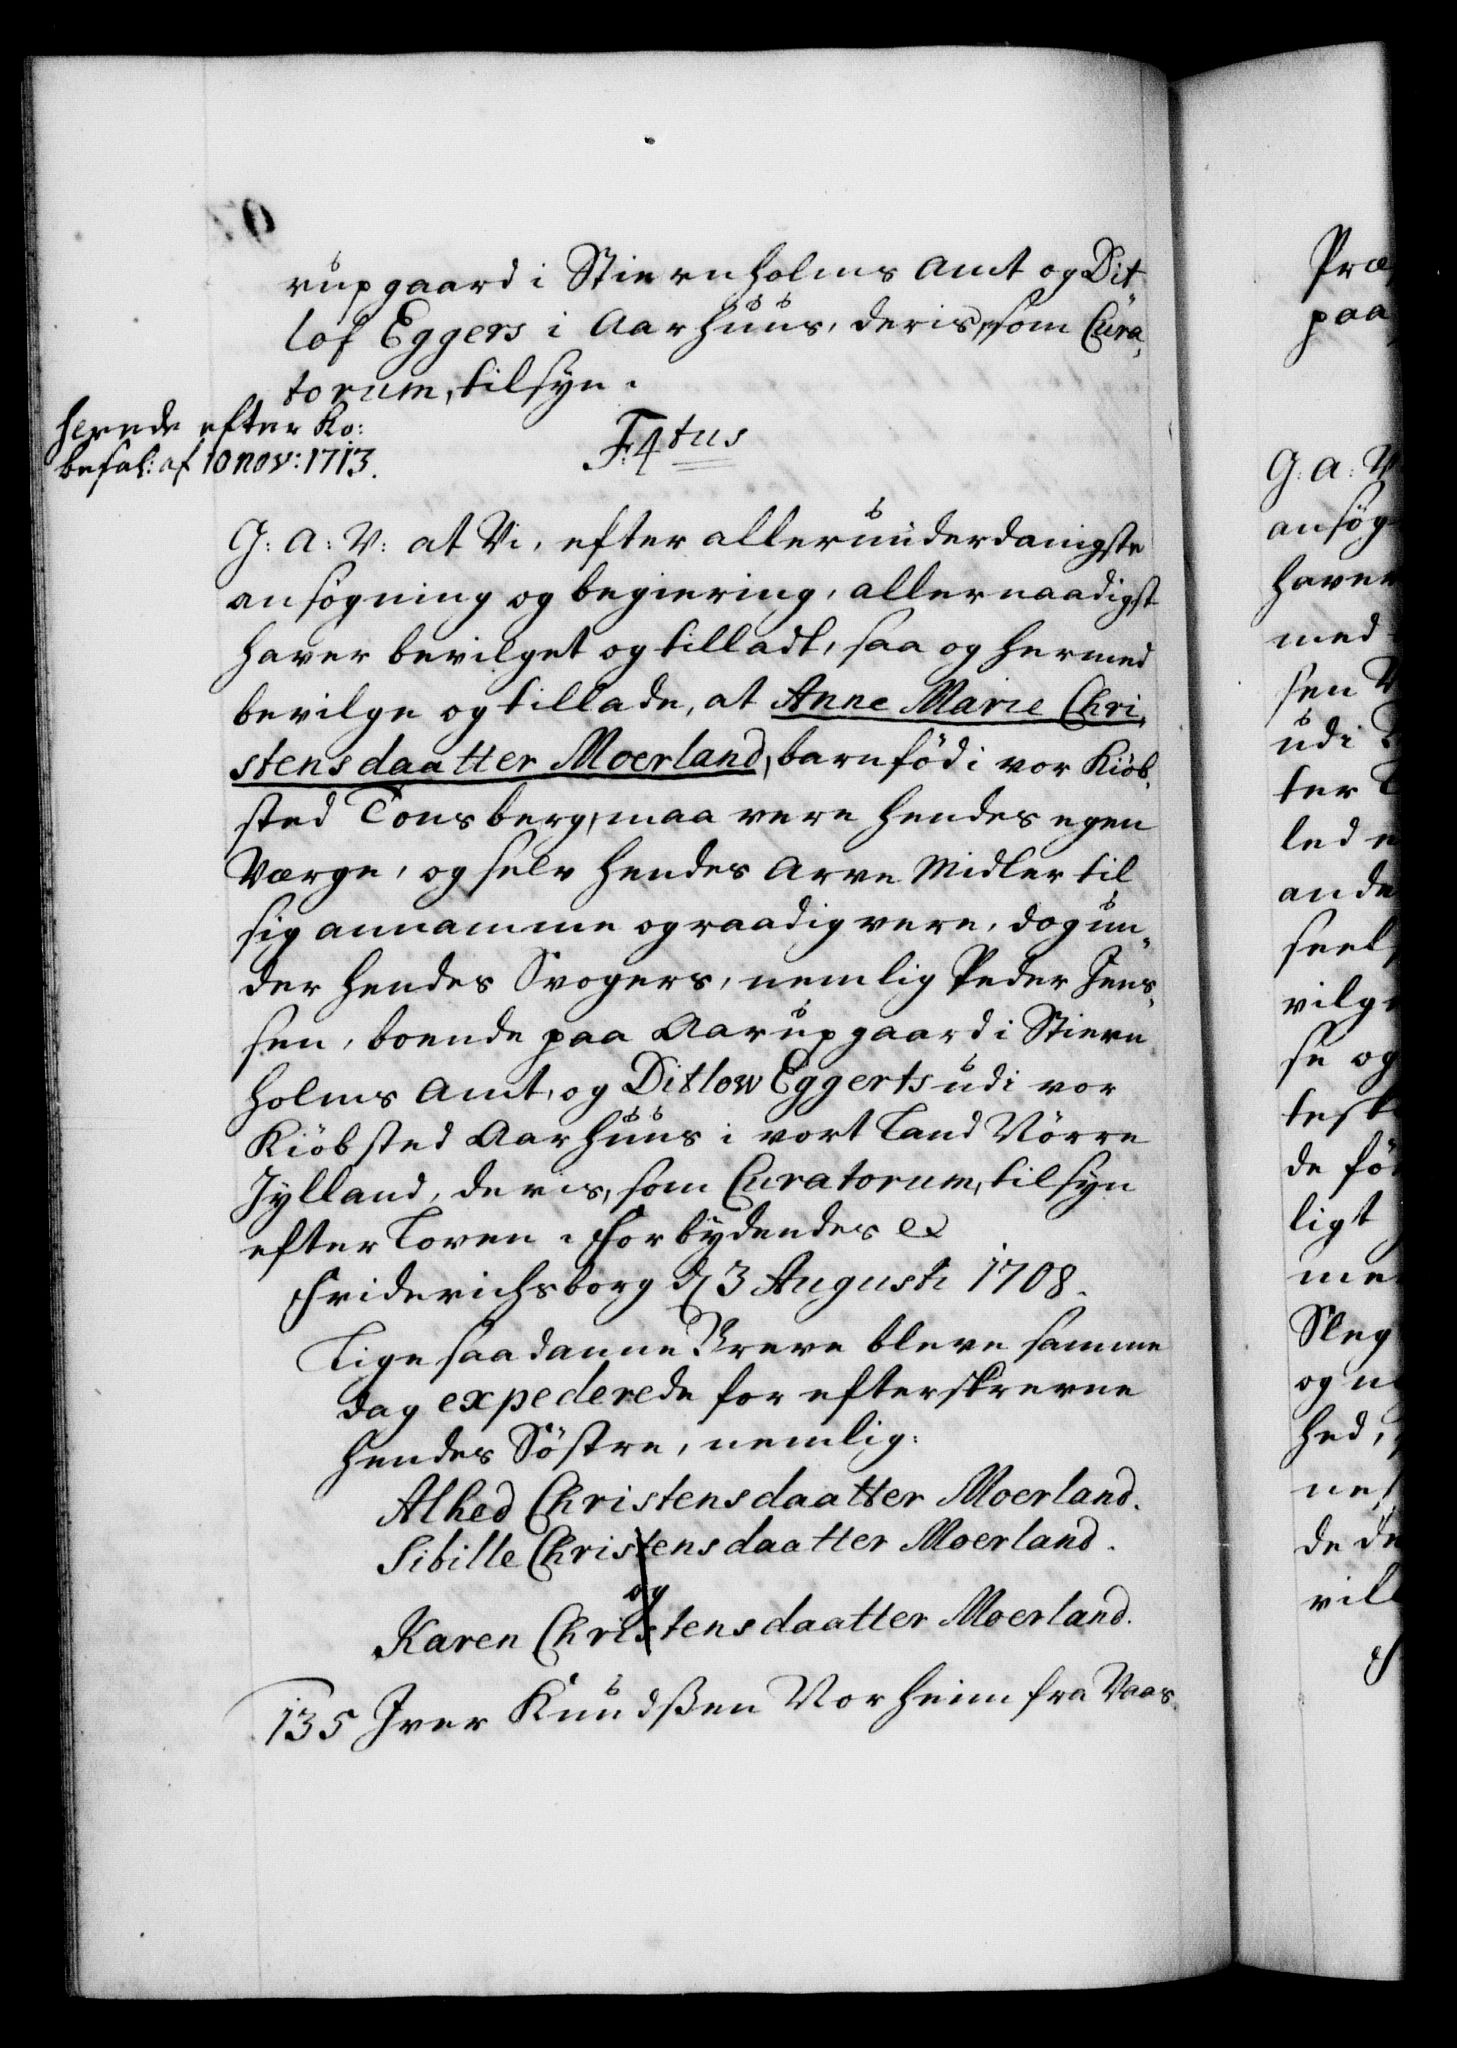 rupgaard i Stiernholms Amt og Dit
lof Eggers i Aarhuus, deris, som Cura,
torum, tilsyn.
F: 4tus
efter Ko:
befal: af 10 nov: 1713.
G: A: V: at Vi, efter allerunderdanigste
ansøgning og begiering, allernaadigst
haver bevilget og tilladt, saa og hermed
bevilge og tillade, at Anne Marie Chri,
stensdaatter Moerland, barnföd i vor Kiöb,
sted Tonsberg, maa vere hendes egen
Værge, og selv hendes Arve Midler til
sig annamme og raadig vere, dog un,
der hendes Svogers, nemlig Peder Jens,
sen, boende paa Aarupgaard i Stiern
holms Amt, og Ditlow Eggerts udi vor
Kiöbsted Aarhuus i vort Land Nörre
Jylland, deris, som Curatorum, tilsyn
efter Loven. Forbydendes etc
Friderichsborg d 3 Augusti 1708.
Lige saadanne Breve bleve samme
dag expederede for efterskrevne
hendes Söstre, nemlig:
Alhed Christensdaatter Moerland.
Sibille Christensdaatter Moerland.
og
Karen Christensdaatter Moerland.
135 Iver Knudssen Vorheim fra Vaas,
Præ
paa
G: A: V
ansøg
haver
med
sen V
udi
ter
led
ande
seel
vilge
se og
test
de fö
ligt
me
Sleg
og n
hed,
nes
de de
vill